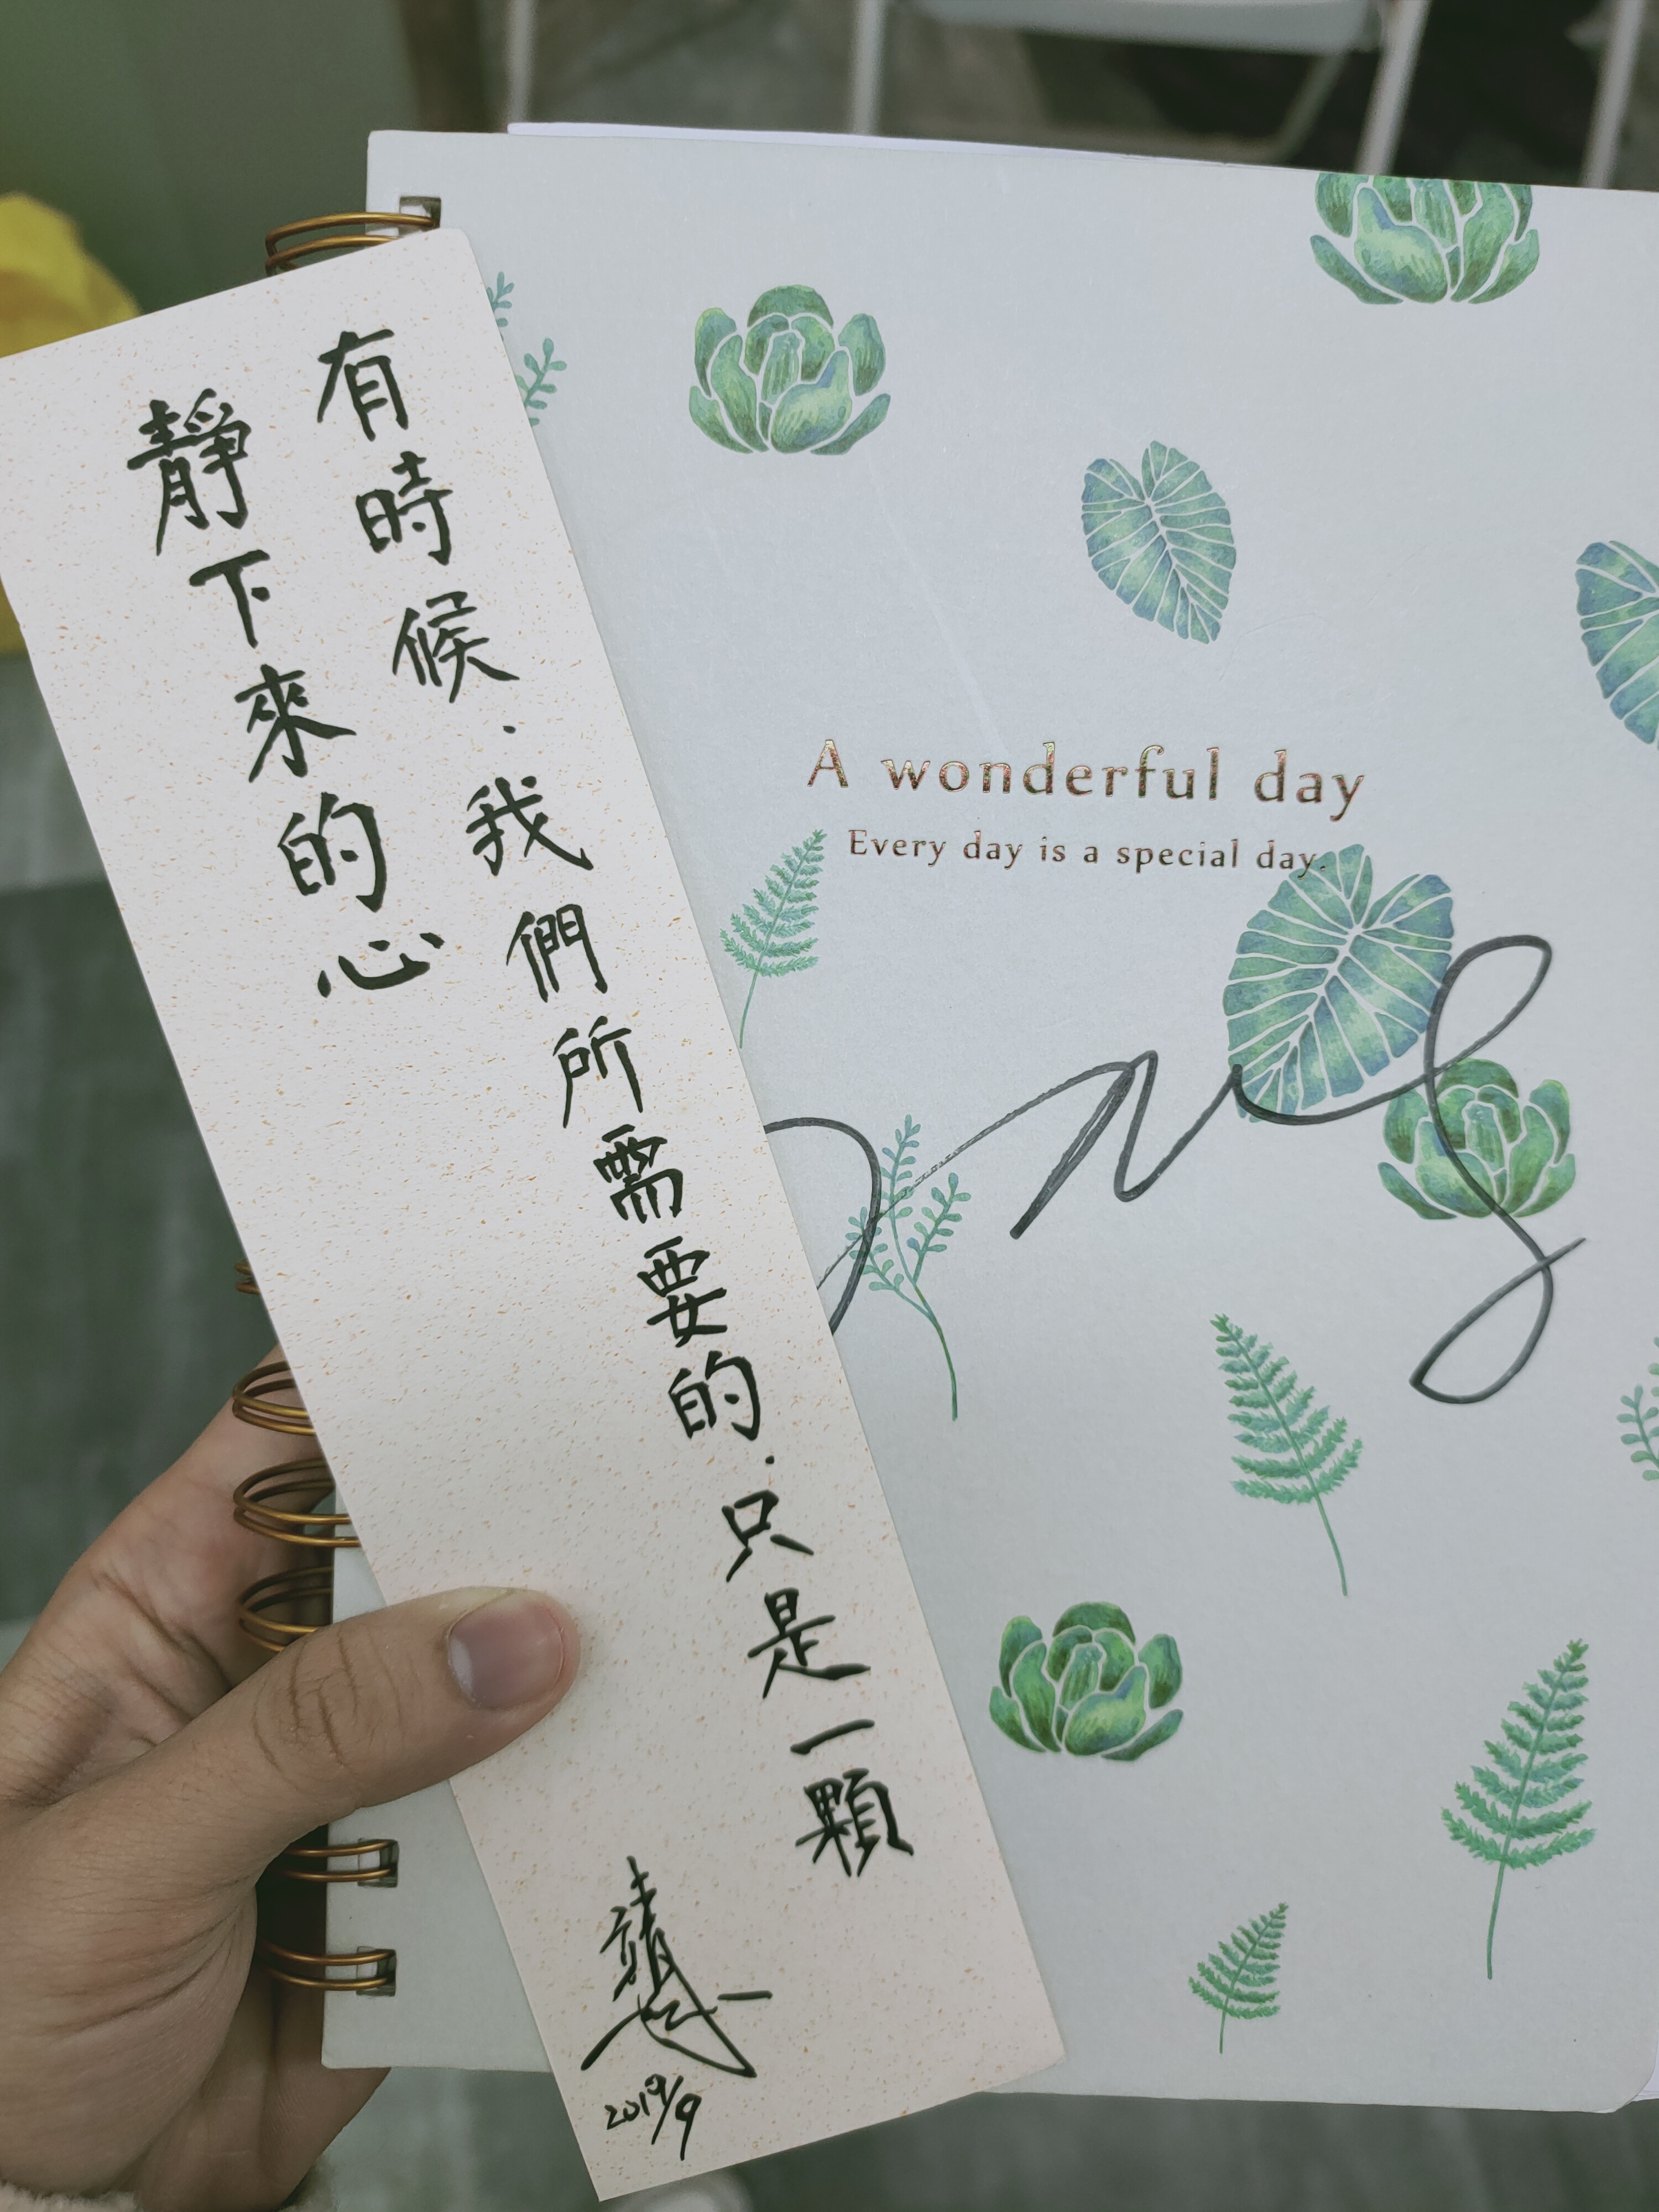 有時候．我們所需要的．只是一顆
靜下來的心
2019/9
A wonderful day
Every day is a special day.